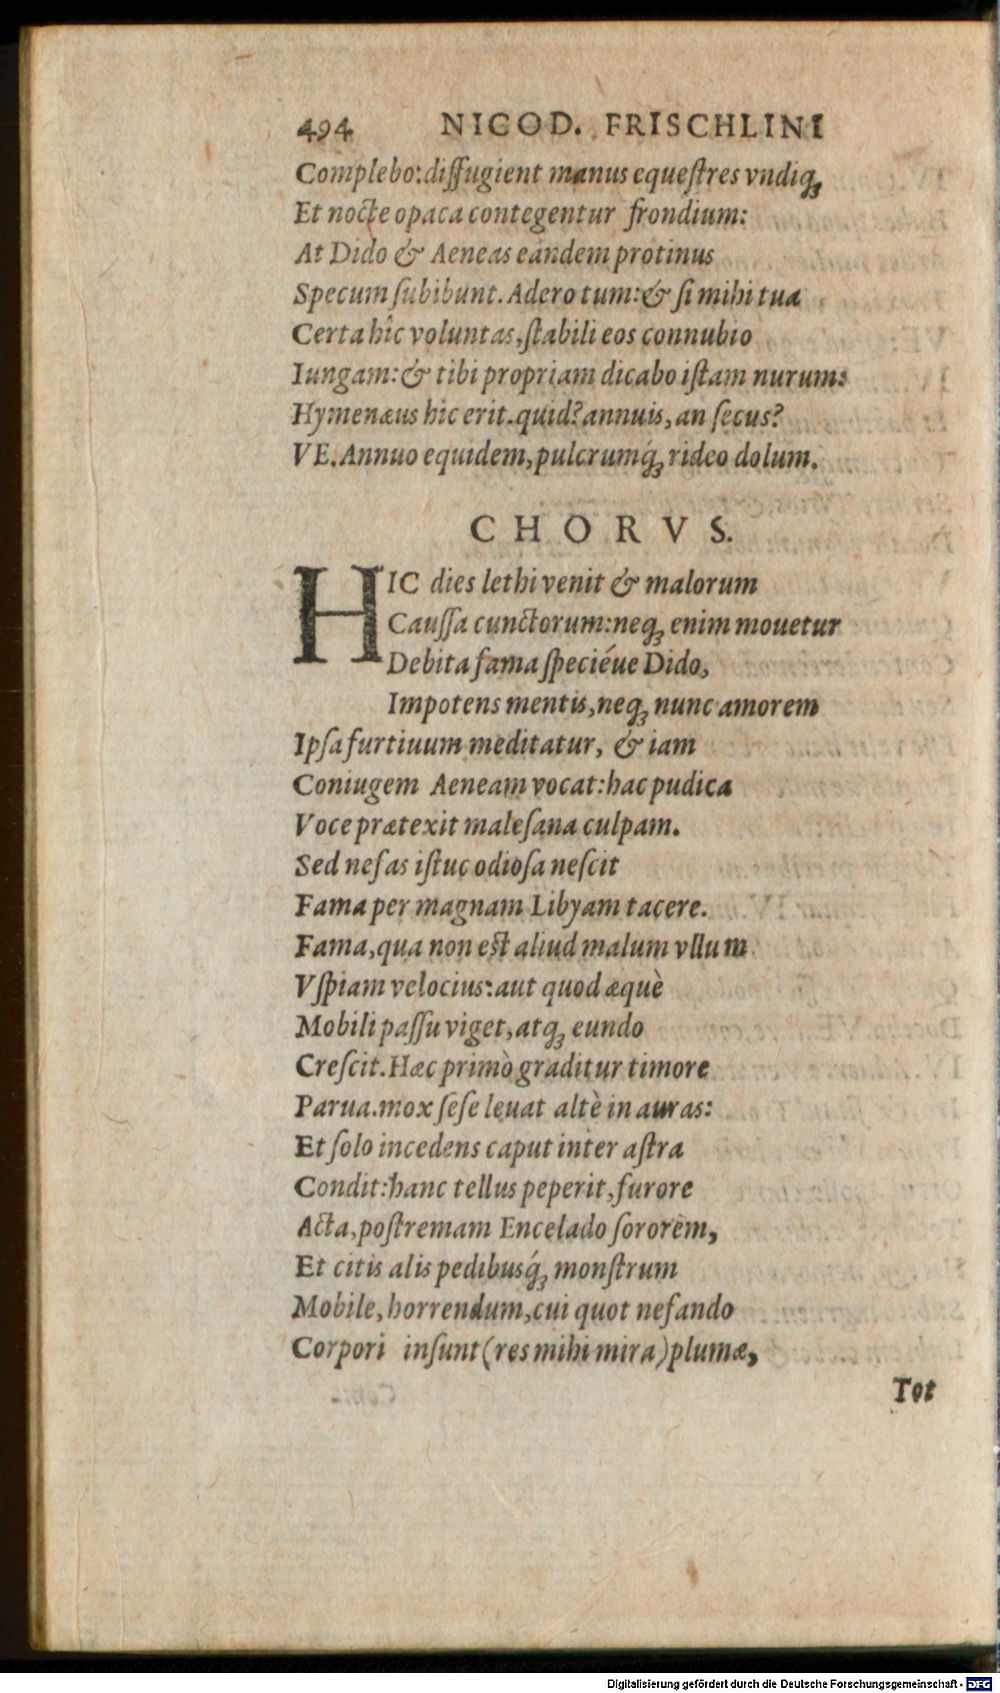 494 NICOD. FRISCHLINI
Complebo: diffugient manus equeſtres vndiq;
Et nocte opaca contegentur frondium:
At Dido & Aeneas eandem protinus
Specum ſubibunt. Adero tum: & ſi mihi tua
Certa hîc voluntas, ſtabili eos connubio
Iungam: & tibi propriam dicabo iſtam nurum:
Hymenæus hic erit. quid? annuis, an ſecus?
VE. Annuo equidem, pulcrumq́; rideo dolum.
CHORVS.
HIC dies lethi venit & malorum
Cauſſa cunctorum: neq; enim mouetur
Debita fama ſpeciéue Dido,
Impotens mentis, neq; nunc amorem
Ipſa furtiuum meditatur, & iam
Coniugem Aeneam vocat: hac pudica
Voce prætexit maleſana culpam.
Sed nefas iſtuc odioſa neſcit
Fama per magnam Libyam tacere.
Fama, qua non est aliud malum vllum
Vſpiam velocius: aut quod æquè
Mobili paſſu viget, atq; eundo
Creſcit. Hæc primò graditur timore
Parua. mox ſeſe leuat altè in auras:
Et ſolo incedens caput inter aſtra
Condit: hanc tellus peperit, furore
Acta, poſtremam Encelado ſororem,
Et citis alis pedibusq́; monſtrum
Mobile, horrendum, cui quot nefando
Corpori inſunt (res mihi mira) plumæ,
Tot
Digitalisierung gefördert durch die Deutsche Forschungsgemeinschaft - DFG